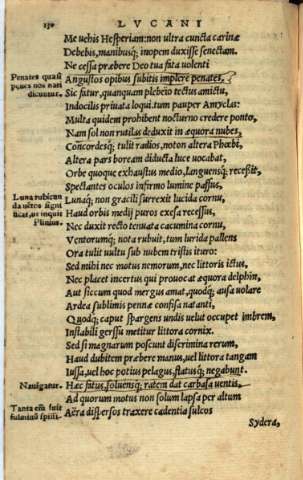 130
LVCANI
Me vehis Hesperiam: non ultra cuncta carinæ
Debebis, manibusq; inopem duxisse senectam.
Ne cessa præbere Deo tua fata volenti
Penates quasi
penes nos nati
dicuntur.
Angustos opibus subitis implere penates,
Sic fatur, quanquam plebeio tectus amictu,
Indocilis privata loqui. tum pauper Amyclas:
Multa quidem prohibent nocturno credere ponto,
Nam sol non rutilas deduxit in æquora nubes,
Concordesq; tulit radios, noton altera Phœbi,
Altera pars boream diducta luce vocabat,
Orbe quoque exhaustus medio, languensq; recessit,
Spectantes oculos infirmo lumine passus,
Luna rubicun
da ventos signi
ficat, ut inquit
Plinius.
Lunaq; non gracili surrexit lucida cornu,
Haud orbis medij puros exesa recessus,
Nec duxit recto tenuata cacumina cornu,
Ventorumq; nota rubuit, tum lurida pallens
Ora tulit vultu sub nubem tristis ituro:
Sed mihi nec motus nemorum, nec littoris ictus,
Nec placet incertus qui provocat æquora delphin,
Aut siccum quod mergus amat, quodq; ausa volare
Ardea sublimis pennæ confisa natanti,
Quodq; caput spargens undis velut occupet imbrem,
Instabili gressu metitur littora cornix.
Sed si magnarum poscunt discrimina rerum,
Haud dubitem præbere manus, vel littora tangam
Iussa, vel hoc potius pelagus, flatusq; negabunt.
Navigatur.
Hæc fatus, solvensq; ratem dat carbasa ventis,
Ad quorum motus non solum lapsa per altum
Tanta em̃ fuit
Aëra dispersos traxere cadentia sulcos
Sydera,